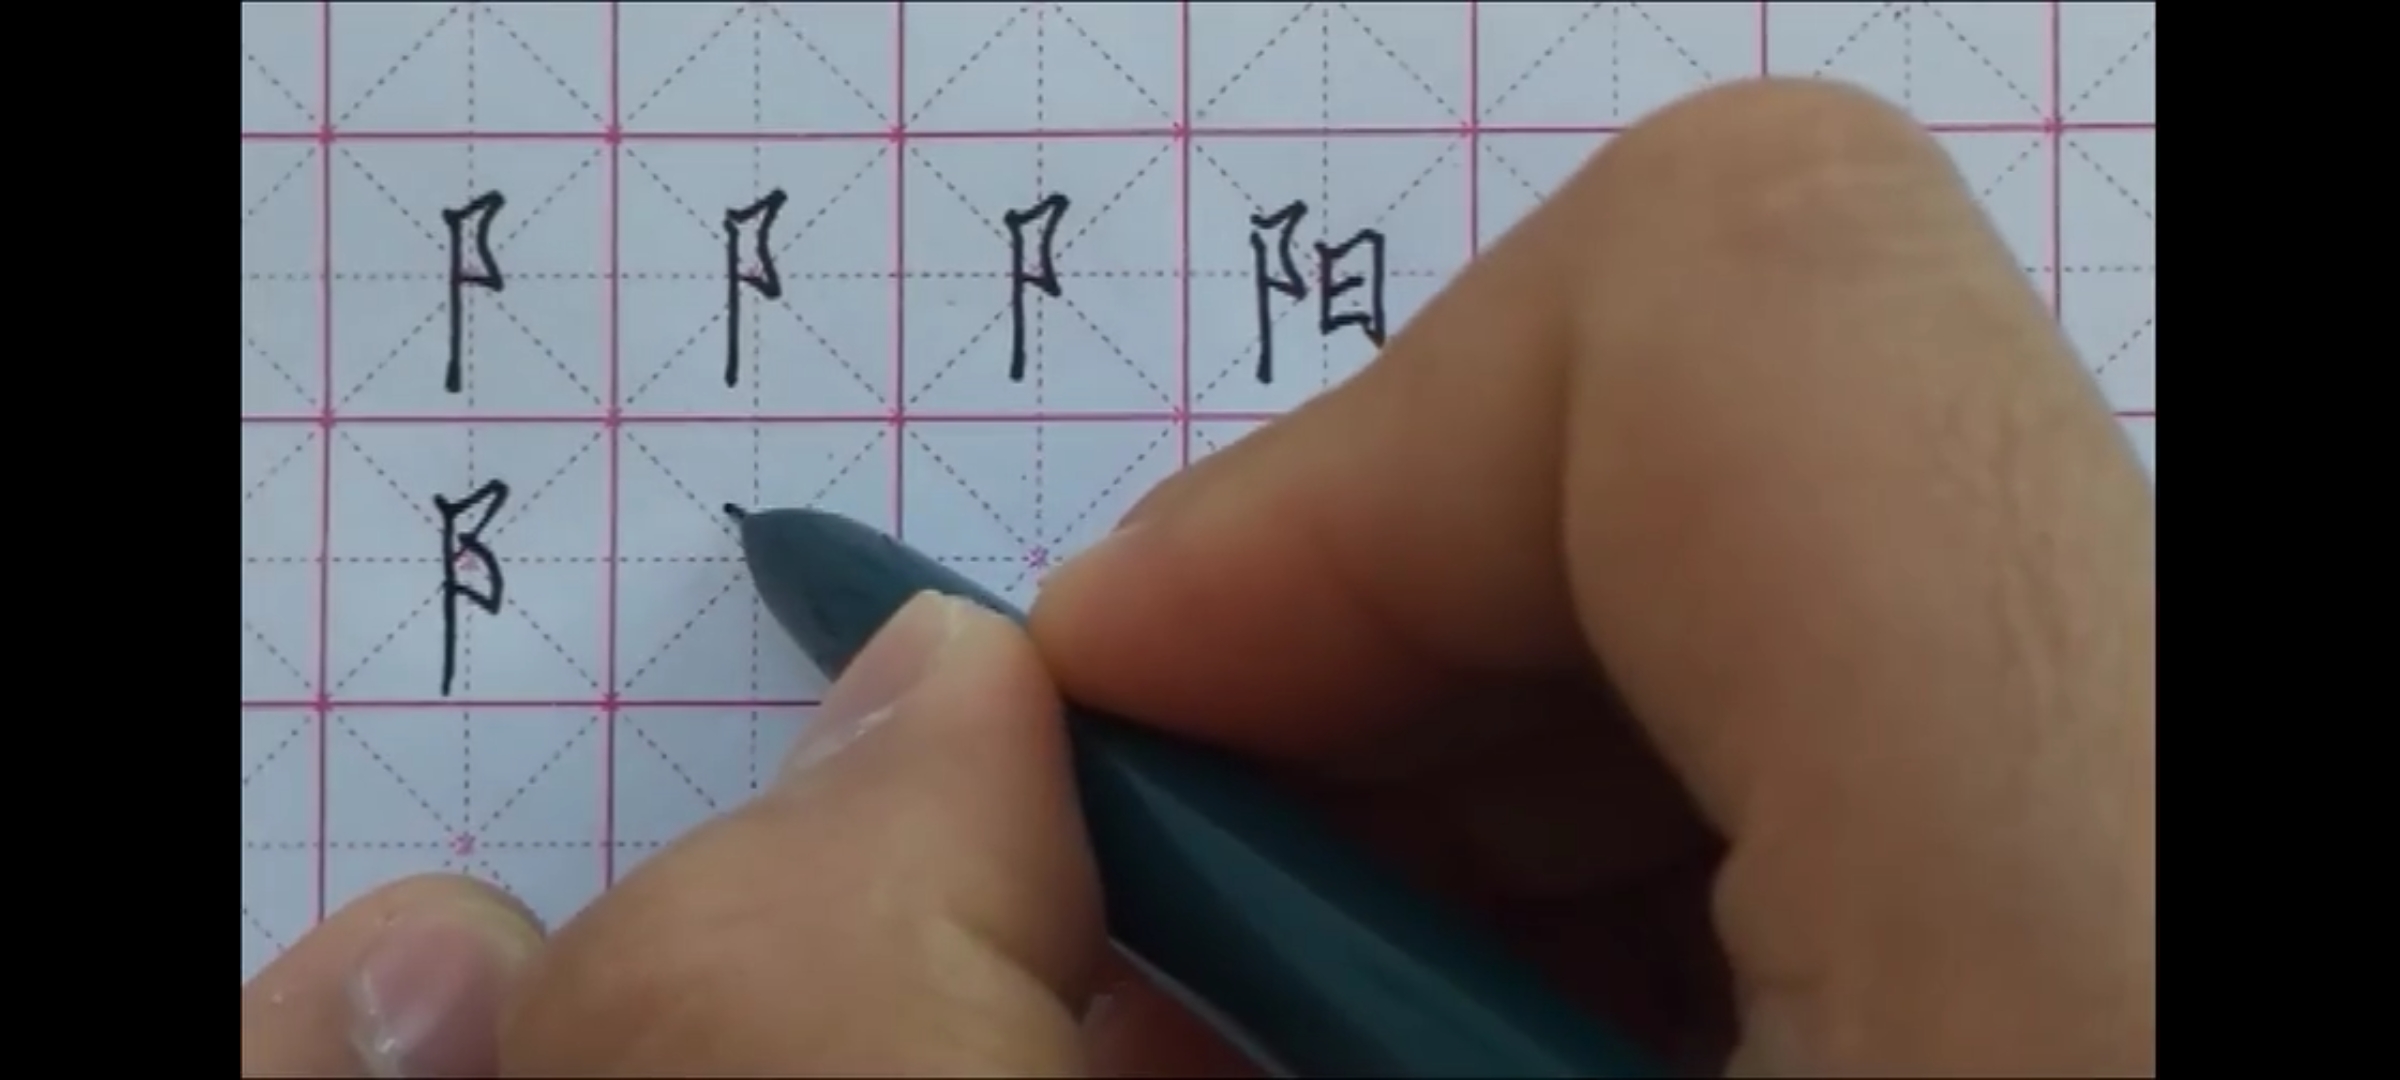 阝 阝 阝 阳
阝